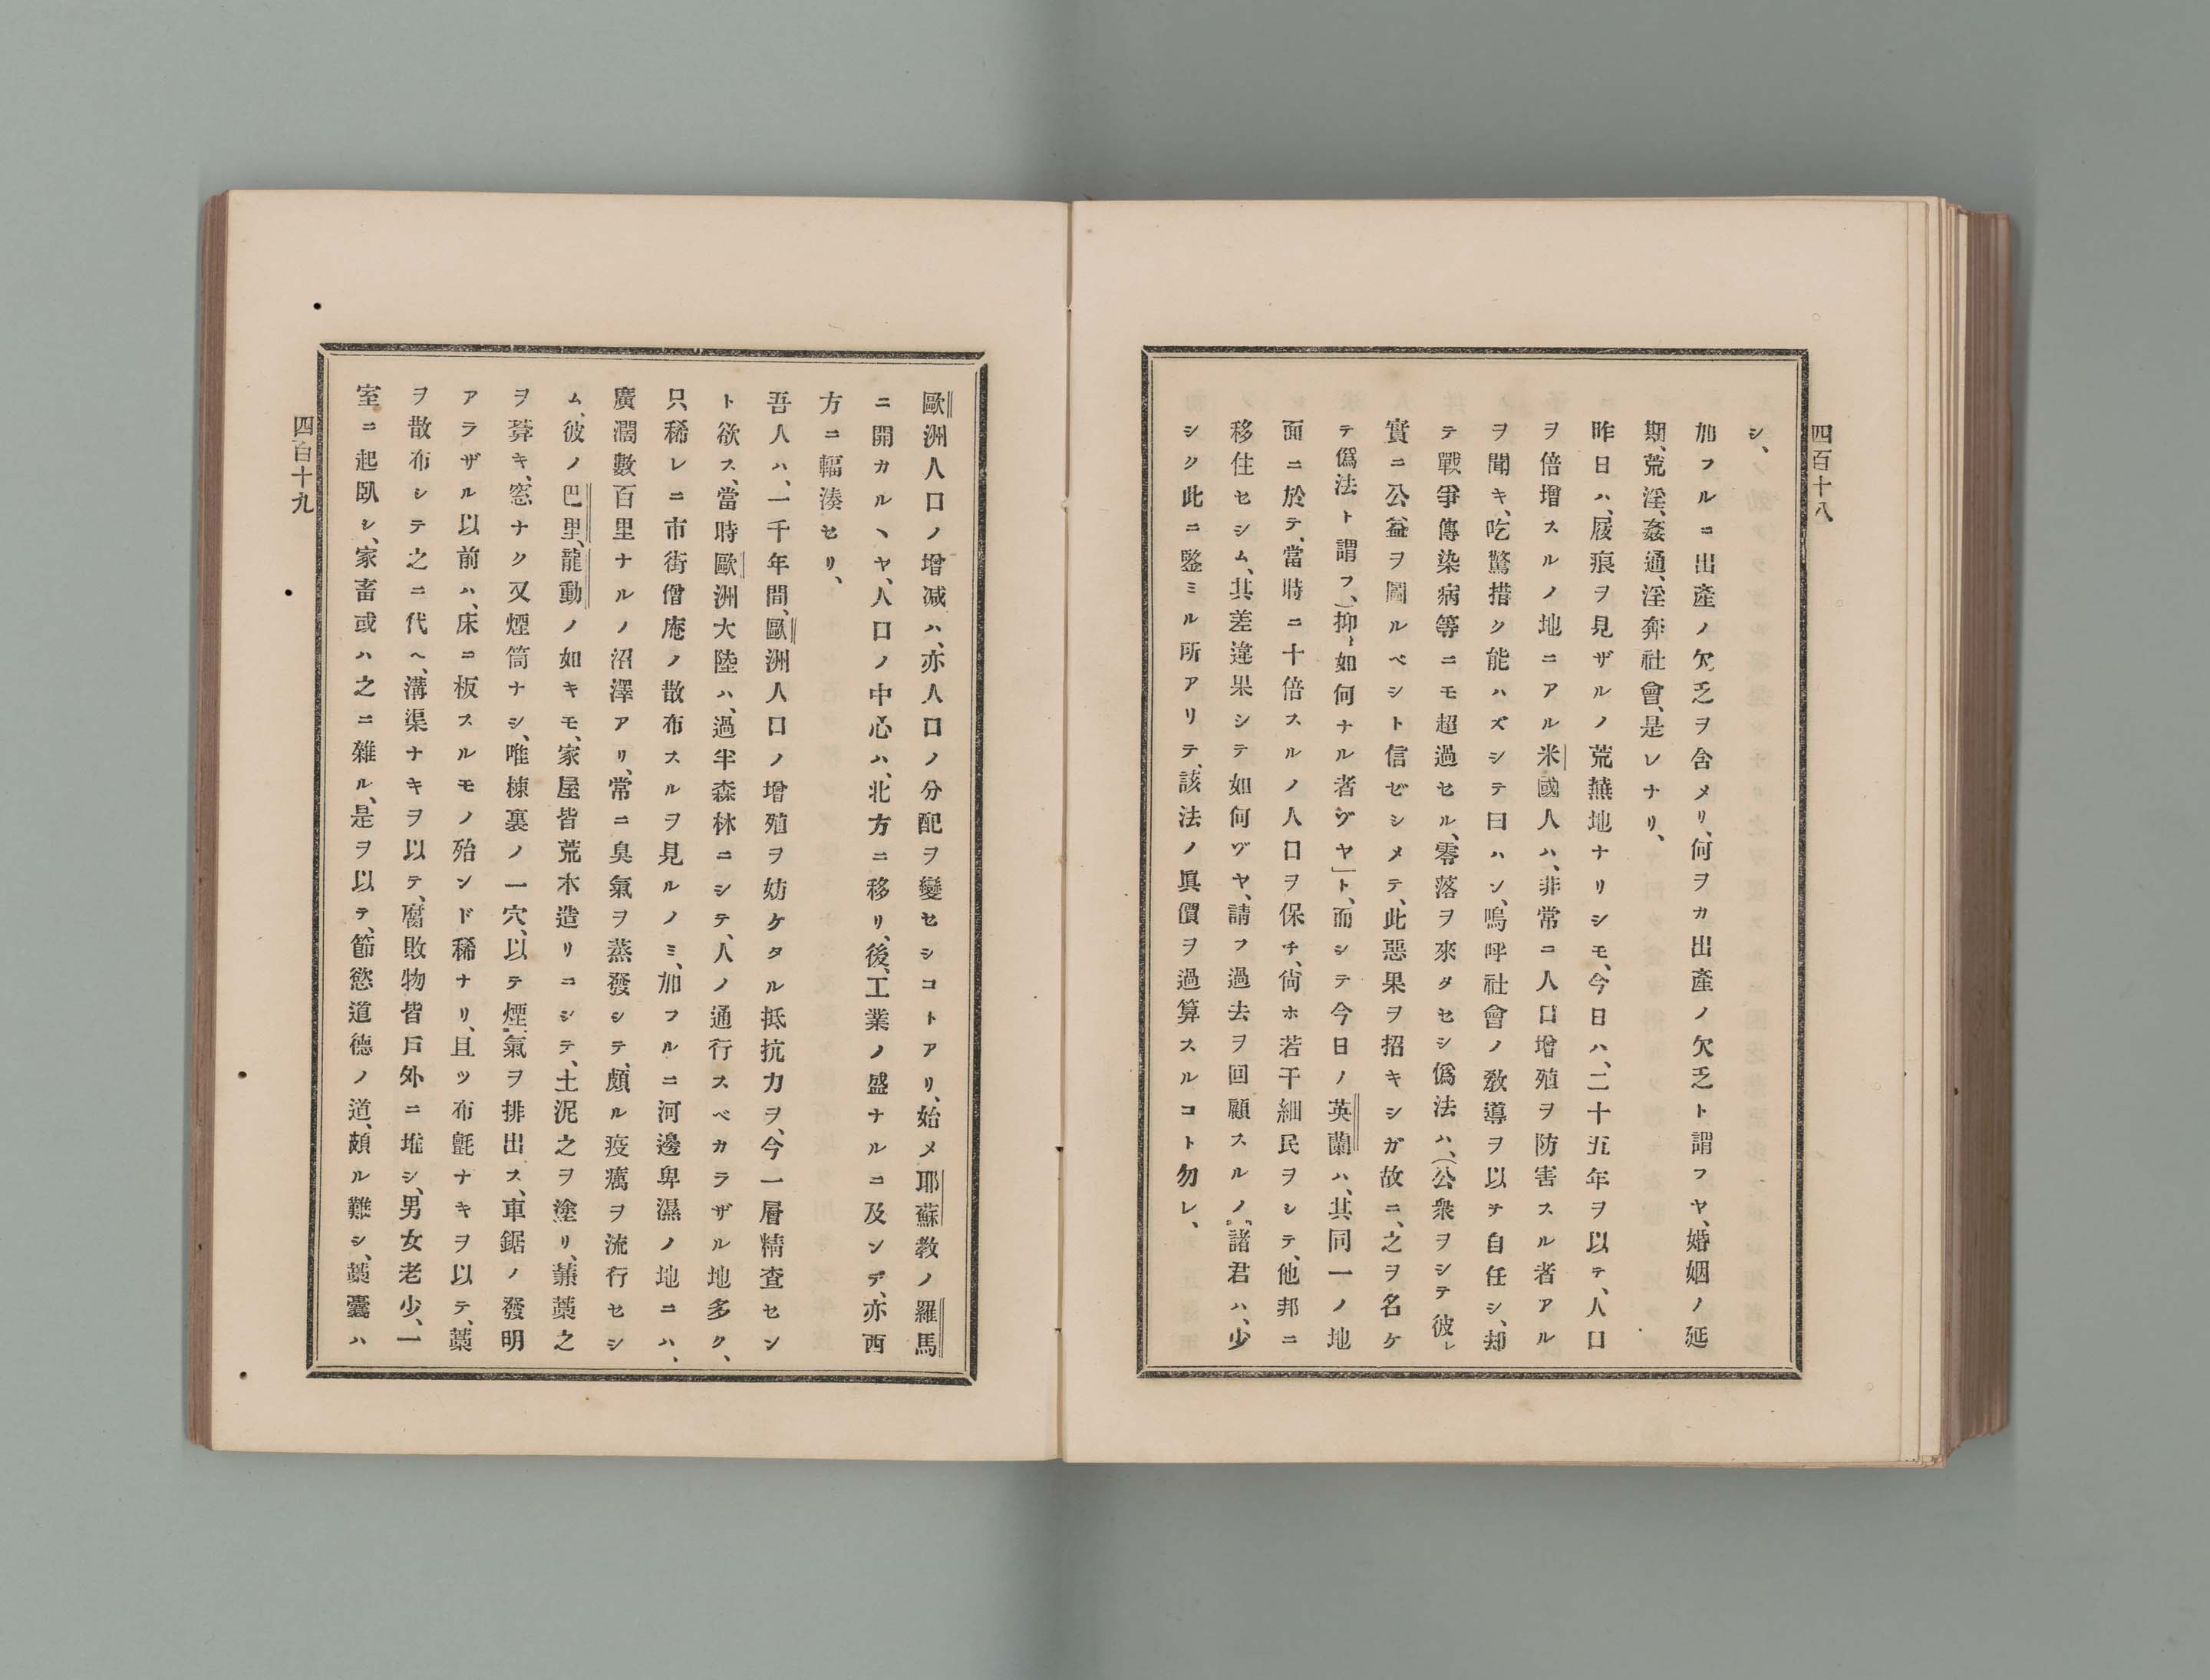 四百十八
シ、
加フルニ出產ノ欠乏ヲ含メリ、何ヲカ出產ノ欠乏ト謂フヤ、婚姻ノ延
期、荒淫、姦通、淫奔社會、是レナリ、
昨日ハ、履痕ヲ見ザルノ荒蕪地ナリシモ、今日ハ、二十五年ヲ以テ、人口
ヲ倍增スルノ地ニアル米國人ハ、非常ニ人口增殖ヲ防害スル者アル
ヲ聞キ、吃驚措ク能ハズシテ曰ハン、嗚呼社會ノ敎導ヲ以テ自任シ、却
テ戰爭傳染病等ニモ超過セル、零落ヲ來タセシ僞法ハ、(公衆ヲシテ彼レ
實ニ公益ヲ圖ルベシト信ゼシメテ、此惡果ヲ招キシガ故ニ、之ヲ名ケ
テ僞法ト謂フ、)抑〻如何ナル者ゾヤ」ト、而シテ今日ノ英蘭ハ、其同一ノ地
面ニ於テ、當時ニ十倍スルノ人口ヲ保チ、尙ホ若干細民ヲシテ、他邦ニ
移住セシム、其差違果シテ如何ゾヤ、請フ過去ヲ回顧スルノ、諸君ハ、少
シク此ニ鑒ミル所アリテ、該法ノ眞價ヲ過算スルコト勿レ、
歐洲人口ノ增减ハ、亦人口ノ分配ヲ變セシコトアリ、始メ耶蘇敎ノ羅馬
ニ開カルヽヤ、人口ノ中心ハ、北方ニ移リ、後、工業ノ盛ナルニ及ンデ、亦西
方ニ輻湊セリ、
吾人ハ、一千年間、歐洲人口ノ增殖ヲ妨ケタル抵抗力ヲ、今一層精査セン
ト欲ス、當時歐洲大陸ハ、過半森林ニシテ、人ノ通行スベカラザル地多ク、
只稀レニ市街僧庵ノ散布スルヲ見ルノミ、加フルニ河邊卑濕ノ地ニハ、
廣濶數百里ナルノ沼澤アリ、常ニ臭氣ヲ蒸發シテ、頗ル疫癘ヲ流行セシ
ム、彼ノ巴里、龍動ノ如キモ、家屋皆荒木造リニシテ、土泥之ヲ塗リ、藁之
ヲ葺キ、窓ナク又煙筒ナシ、唯棟裏ノ一穴、以テ煙氣ヲ排出ス、車鋸ノ發明
アラザル以前ハ、床ニ板スルモノ殆ンド稀ナリ、且ツ布氈ナキヲ以テ、藁
ヲ散布シテ之ニ代ヘ、溝渠ナキヲ以テ、腐敗物皆戶外ニ堆シ、男女老少、一
室ニ起臥シ、家畜或ハ之ニ雜ル、是ヲ以テ、節慾道德ノ道、頗ル難シ、藁囊ハ
四百十九